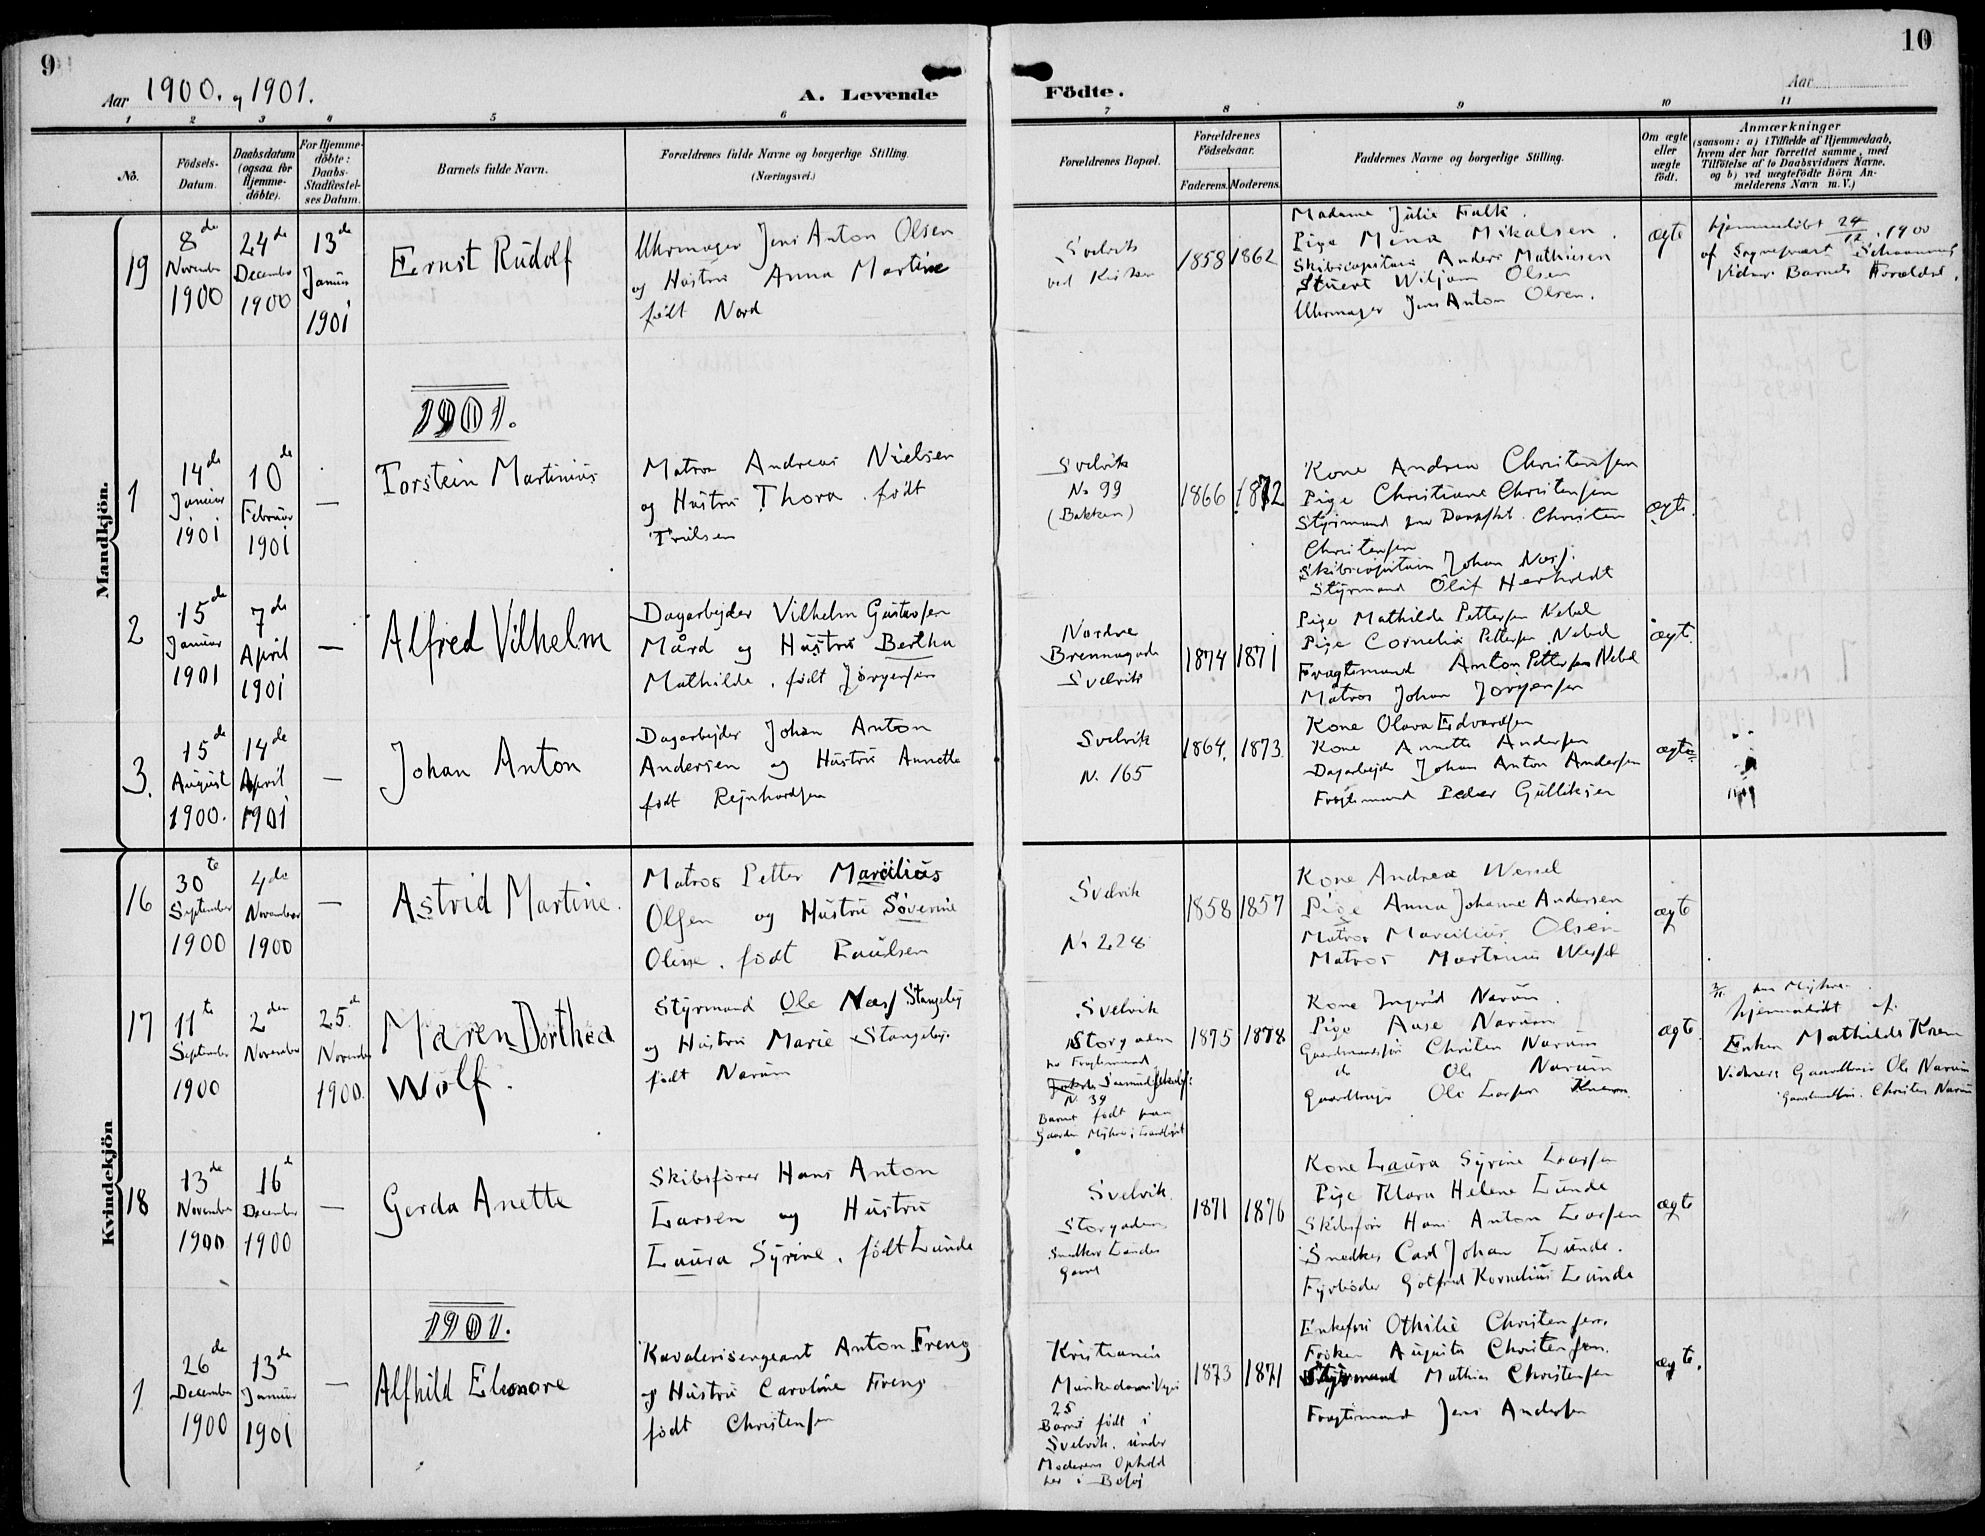 9
10
Aar 1900. og 1901.
A. Levende Födte.
Aar
1 2 3 4 5 6 7 8 9 10 11
No.
Födsels-
Datum.
Daabsdatum
(ogsaa for
Hjemme-
döbte).
For Hjemme-
döbte:
Daabs-
Stadfæstel-
ses Datum.
Barnets fulde Navn.
Forældrenes fulde Navne og borgerlige Stilling.
(Næringsvei.)
Forældrenes Bopæl.
Forældrenes
Födselsaar.
Faderens. Moderens.
Faddernes Navne og borgerlige Stilling.
Om ægte
eller
uægte
födt.
Anmærkninger
(saasom: a) i Tilfælde af Hjemmedaab,
hvem der har forrettet samme, med
Tilföielse af to Daabsvidners Navne.
og b) ved uægtefödte Börn An-
melderens Navn m. V.)
Mandkjön.
19
8de
November
1900
24de
December
1900
13de
Januar
1901
Ernst Rudolf
Uhrmager Jens Anton Olsen
og Hustru Anna Martine
født Nord
Svelvik
ved Kirken
1858 1862
Madame Julie Falk.
Pige Mina Mikalsen.
Skibscapitain Anders Mathiesen
Stuert Wiljam Olsen
Uhrmager Jens Anton Olsen.
ægte
hjemmedøbt 24/12 1900
af Sognepræst
Vidner Barnets Forældre.
1901.
1
14de
Januar
1901
10de
Februar
1901
—
Torstein Martinius
Matros Andreas Nielsen
og Hustru Thora. født
Truelsen
Svelvik
No 99
(Bakken)
1866 1872
Kone Andrea Christensen
Pige Christiane Christensen
Styrmand paa Dampskib. Christen
Christensen
Skibscapitain Johan Næss.
Styrmand Olaf Herholdt
ægte.
2
15de
Januar
1901
7de
April
1901
—
Alfred Vilhelm
Dagarbejder Vilhelm Gustavsen
Mård og Hustru Bertha
Mathilde. født Jørgensen
Nordre
Brennagade
Svelvik
1874 1871
Pige Mathilde Pettersen Nebel
Pige Cornelia Pettersen Nebel
Fragtemand Anton Pettersen Nebel
Matros Johan Jörgensen
ægte.
3.
15de
August
1900.
14de
April
1901
—
Johan Anton
Dagarbejder Johan Anton
Andersen og Hustru Annette
født Rejnhardsen
Svelvik
N. 165
1864. 1873
Kone Olava Edvardsen
Kone Annette Andersen
Dagarbejder Johan Anton Andersen
Fragtemand Peder Gulliksen
ægte
Kvindekjön
16
30te
September
1900
4de
November
1900
—
Astrid Martine.
Matros Petter Marcilius
Olsen og Hustru Søverine
Oline. født Paulsen
Svelvik
No 228
1858 1857
Kone Andrea Wessel
Pige Anna Johanne Andersen
Matros Marcilius Olsen
Matros Martinius Wessel
ægte
17
11te
September
1900
2den
November
25de
November
1900.
Maren Dorthea
Wolf.
Styrmand Ole Næss Stangeby
og Hustru Marie Stangeby.
født Narum
Svelvik
Storgaden
hos Fragtemand
N. 39
Barnet født paa
Gaarden
1875 1878
Kone Ingerid Narum.
Pige Aase Narum
Gaardmandssøn Christen Narum
do Ole Narum
Gaardbruger Ole Larsen
ægte.
hjemmedøbt af
Enken Mathilde
Vidner: Gaardbruger Ole Narum
Gaardmandssøn. Christen Narum
18
13de
November
1900
16de
December
1900
—
Gerda Anette
Skibsfører Hans Anton
Larsen og Hustru
Laura Syrine. født Lunde
Svelvik.
Storgaden
Snedker Lundes
Gaard
1871 1876
Kone Laura Syrine Larsen
Pige Klara Helene Lunde
Skibsfører Hans Anton Larsen
Snedker Carl Johan Lunde.
Fyrbøder Gotfred Kornelius Lunde
ægte
1901.
1
26de
December
1900
13de
Januar
1901
—
Alfhild Elenore
Kavalerisergeant Anton Freng
og Hustru Caroline Freng
født Christensen
Kristiania
Munkedamsvejen
25
Barnet født i
Svelvik. under
Moderens Ophold
her i Besøg
1873 1871
Enkefru Othilie Christensen.
Frøken Augusta Christensen.
Styrmand Mathias Christensen
Fragtemand Jens Andersen
ægte.